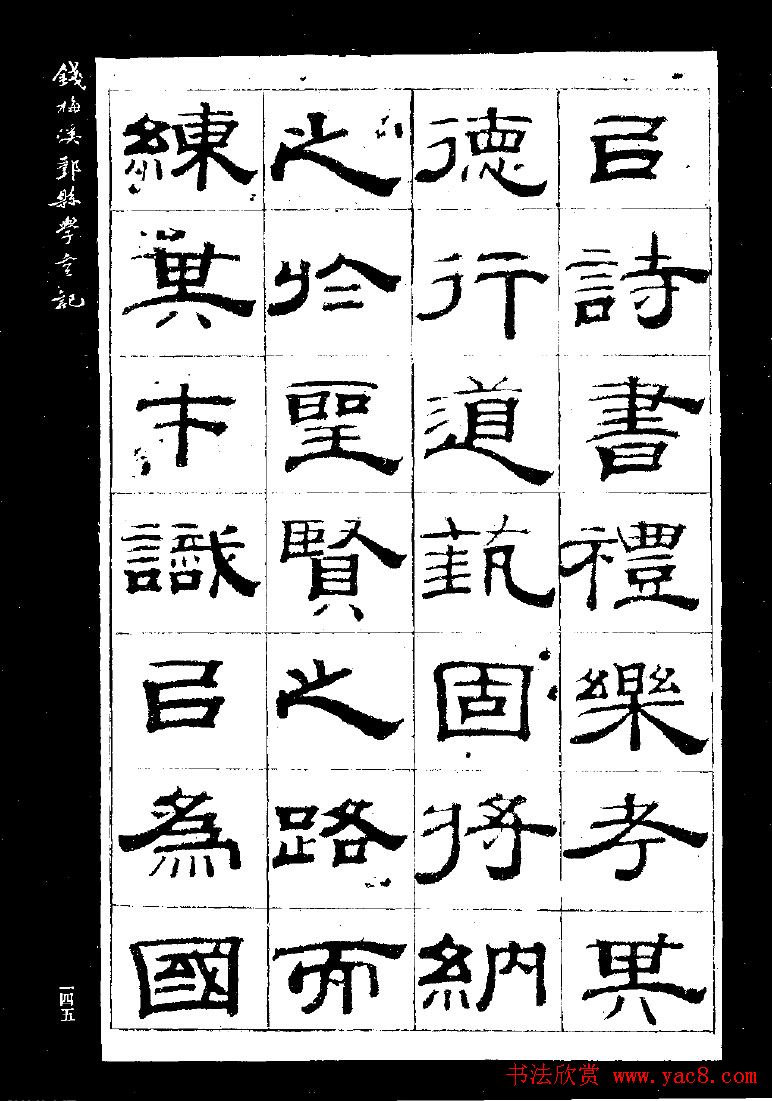 㠯詩書禮樂考其
德行道蓺固將納
之於聖賢之路而
練其才識㠯為國
錢梅溪鄞縣學堂記
一四五
书法欣赏 www.yac8.com